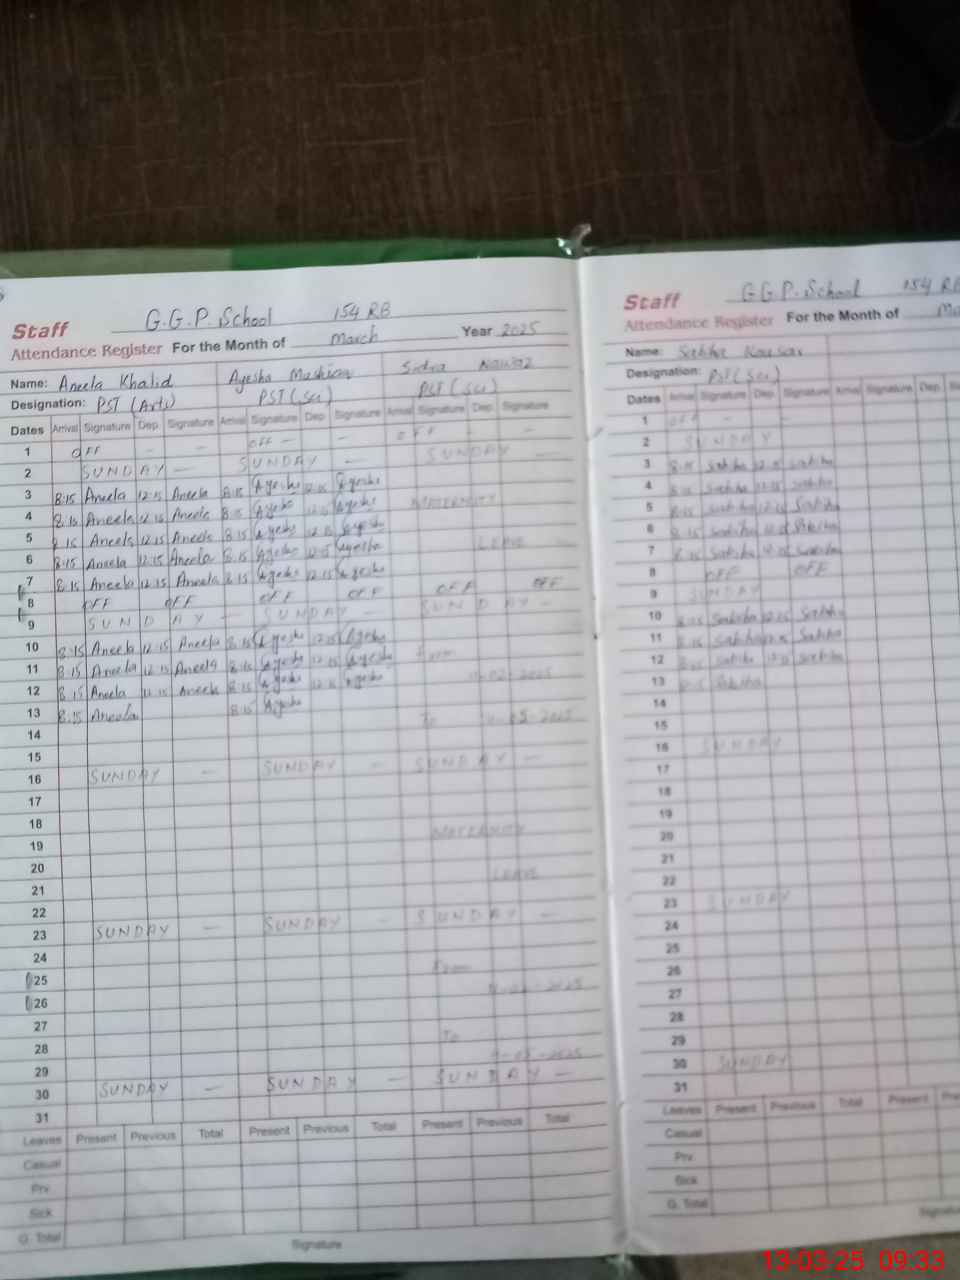 Staff G.G.P. School 154 RB
Attendance Register For the Month of March Year 2025
Name: Aneela Khalid Ayesha Sidra Nawaz
Designation: PST (Arts) PST (Sci) PST (Sci)
Dates Arrival Signature Dep. Signature Arrival Signature Dep. Signature Arrival Signature Dep. Signature
1 OFF - - OFF - - OFF - -
2 SUNDAY - SUNDAY - SUNDAY -
3 8:15 Aneela 12:15 Aneela 8:15 Ayesha 12:15 Ayesha
4 8:15 Aneela 12:15 Aneela 8:15 Ayesha 12:15 Ayesha MATERNITY
5 8:15 Aneela 12:15 Aneela 8:15 Ayesha 12:15 Ayesha
6 8:15 Aneela 12:15 Aneela 8:15 Ayesha 12:15 Ayesha LEAVE
7 8:15 Aneela 12:15 Aneela 8:15 Ayesha 12:15 Ayesha
8 OFF OFF OFF OFF OFF OFF
9 SUNDAY - SUNDAY - SUNDAY -
10 8:15 Aneela 12:15 Aneela 8:15 Ayesha 12:15 Ayesha
11 8:15 Aneela 12:15 Aneela 8:15 Ayesha 12:15 Ayesha From
12 8:15 Aneela 12:15 Aneela 8:15 Ayesha 12:15 Ayesha
13 8:15 Aneela 8:15 Ayesha
14 To
15
16 SUNDAY - SUNDAY - SUNDAY -
17
18
19 MATERNITY
20
21 LEAVE
22
23 SUNDAY - SUNDAY - SUNDAY -
24
25 From
26
27
28 To
29
30 SUNDAY - SUNDAY - SUNDAY -
31
Leaves Present Previous Total Present Previous Total Present Previous Total
Casual
Prv
Sick
G. Total
Signature
Staff G.G.P. School 154 RB
Attendance Register For the Month of Ma
Name: Sabha Kousar
Designation: PST (Sci)
Dates Arrival Signature Dep. Signature Arrival Signature Dep.
1 OFF
2 SUNDAY
3 8:15 Sabha 12:15 Sabha
4 8:15 Sabha 12:15 Sabha
5 8:15 Sabha 12:15 Sabha
6 8:15 Sabha 12:15 Sabha
7 8:15 Sabha 12:15 Sabha
8 OFF OFF
9 SUNDAY
10 8:15 Sabha 12:15 Sabha
11 8:15 Sabha 12:15 Sabha
12 8:15 Sabha 12:15 Sabha
13 8:15 Sabha
14
15
16 SUNDAY
17
18
19
20
21
22
23 SUNDAY
24
25
26
27
28
29
30 SUNDAY
31
Leaves Present Previous Total Present
Casual
Prv
Sick
G. Total
13-03-25 09:33